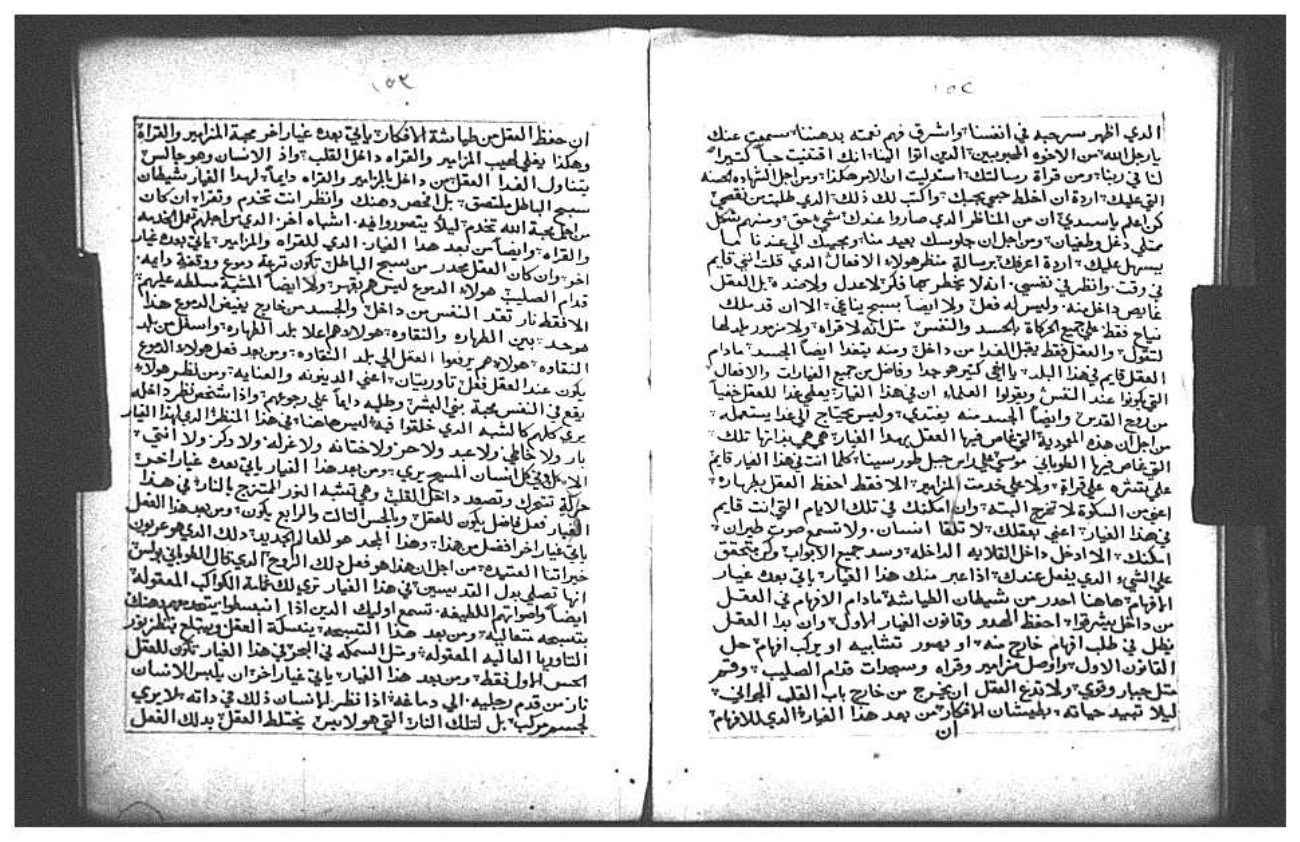 ١٥٢
الدي اظهر سرحبه في انفسنا واشرق فهم نعمته بدهننا سمعت عنك
يارجل الله من الاخوه المحبوبين الدين اتوا الينا انك اقتنيت حباً كتيراً
لنا في ربنا ومن قراة رسالتك استدليت ان الامر هكذا ومن اجل الشهاده الحسنه
التي عليك اردة ان اخلط حبي بحبك واكتب لك ذلك الدي طلبت من نقصي
كن اعلم ياسيدي ان من المناظر الدي صاروا عندك شي حق ومنهم شكل
ممتلي دغل وطغيان ومن اجل ان جلوسك بعيد منا ومجييك الي عندنا ما
يسهل عليك اردة اعرفك برسالة منظر هولاء الافعال الدي قلت انني قايم
في وقت وانظر في نفسي انه لا يخطر بها فكر لاعدل ولا ضده بل العقل
غايص داخل منه وليس له فعل ولا ايضاً يسبح يناغي الا ان قد ملك
نياح فقط علي جميع الحركاة بالجسد والنفس متل انه لا قراه ولا مزمور يلد لها
لتقول والعقل فقط يقبل الغدا من داخل ومنه يتغدا ايضاً الجسد مادام
العقل قايم في هذا البلد يا اخي كتير هو جدا وفاضل من جميع الغيارات والافعال
التي يكونوا عند النفس ويقولوا العلماء ان في هذا الغيار يعطي غدا للعقل خفياً
من روح القدس وايضاً الجسد منه يغتدي وليس يحتاج الي غدا يستعمله
من اجل ان هذه المعودية التي غاص فيها العقل بهدا الغيار هي هي بذاتها تلك
التي غاص فيها الطوباني موسي علي راس جبل طور سينا كلما انت في هذا الغيار قايم
علي تفتره علي قراة ولا علي خدمت المزامير الا فقط احفظ العقل بطهاره
اعني من السكوة لا تخرج البته وان امكنك في تلك الايام التي انت قايم
في هذا الغيار اعني بعقلك لا تلقا انسان ولا تسمع صوت طيران
امكنك الا ادخل داخل القلايه الداخله وسد جميع الابواب وكن متحقق
علي الشيء الدي يفعل عندك اذا عبر منك هذا الغيار ياتي بعده غيار
الافهام هاهنا احدر من شيطان الطياشة مادام الافهام في العقل
من داخل يشرقوا احفظ الهدو وقانون الغيار الاول وان بدا العقل
يظل في طلب افهام خارج منه او بصور تشابيه او يركب افهام حل
القانون الاول واوصل مزامير وقراه وسجدات قدام الصليب وقم
متل جبار وقوي ولا تدع العقل ان يخرج من خارج باب القلب الجواني
ليلا تبيد حياته بطيشان الافكار من بعد هذا الغيار الدي للافهام
ان
١٥٣
ان حفظ العقل من طياشة الافكار ياتي بعده غيار اخر محبة المزامير والقراة
وهكذا يغلي لهيب المزامير والقراه داخل القلب واذ الانسان وهو جالس
يتناول الغدا العقل من داخل بالمزامير والقراه دايماً لهدا الغيار شيطان
سبح الباطل ملتصق بل افحص دهنك وانظر انت تخدم وتقرا ان كان
من اجل محبة الله تخدم ليلا يتصوروا فيه اشياه اخر الدي من اجلهم تعمل الخدمه
والقراه وايضاً من بعد هدا الغيار الدي للقراه والمزامير ياتي بعده غيار
اخر وان كان العقل محدر من سبح الباطل تكون ترعة دموع ووقفة دايمه
قدام الصليب هولاء الدموع ليس هم بقهر ولا ايضاً المشية مسلطه عليهم
الا فقط نار تقد النفس من داخل والجسد من خارج يفيض الدموع هذا
موحد بين الطهاره والنقاوه هولاء هم اعلا بلد الطهاره واسفل من بلد
النقاوه هولاء هم يرفعوا العقل الي بلد النقاوه ومن بعد فعل هولاء الدموع
يكون عند العقل فعل تاوريتان اعني الدينونه والعنايه ومن نظر هولاء
يقع في النفس محبة بني البشر وطلبه دايماً علي رجوعهم واذا شخص نظر داخله
يري كلهم كالشبه الدي خلقوا فيه ليس هاهنا في هذا المنظر الدي لهدا الغيار
بار ولا خاطي ولا عبد ولا حر ولا ختانه ولا غرله ولا دكر ولا انتي
الا كل وفي كل انسان المسيح يري ومن بعد هدا الغيار ياتي بعده غيار اخر
حركة تتحرك وتصعد داخل القلب وهي تشبه النور الممتزج بالنار في هدا
الغيار فعل فاضل يكون للعقل وبالحس التالت والرابع يكون ومن بعد هدا الفعل
ياتي غيار اخر افضل من هذا وهذا المجد هو للعالم الجديد دلك الدي هو عربون
خيراتنا العتيده من اجل ان هذا هو فعل دلك الروح الدي قال الطوباني بولس
انها تصلي بدل القديسين في هدا الغيار تري لك غمامة الكواكب المعقوله
ايضاً واصواتهم اللطيفه تسمع اوليك الدين اذا انبسطوا يتحد معهم دهنك
بتسبحه متعاليه ومن بعد هذا التسبحه ينسكة العقل ويبتلع بنظر نور
التاوريا العاليه المعقوله ومتل السمكه في البحر في هذا الغيار تكون للعقل
الحس الاول فقط ومن بعد هذا الغيار ياتي غيار اخر ان يلبس الانسان
نار من قدم رجليه الي دماغه اذا نظر الانسان ذلك في داته لا يري
لجسم مركب بل لتلك النار التي هو لابس يختلط العقل بدلك الفعل